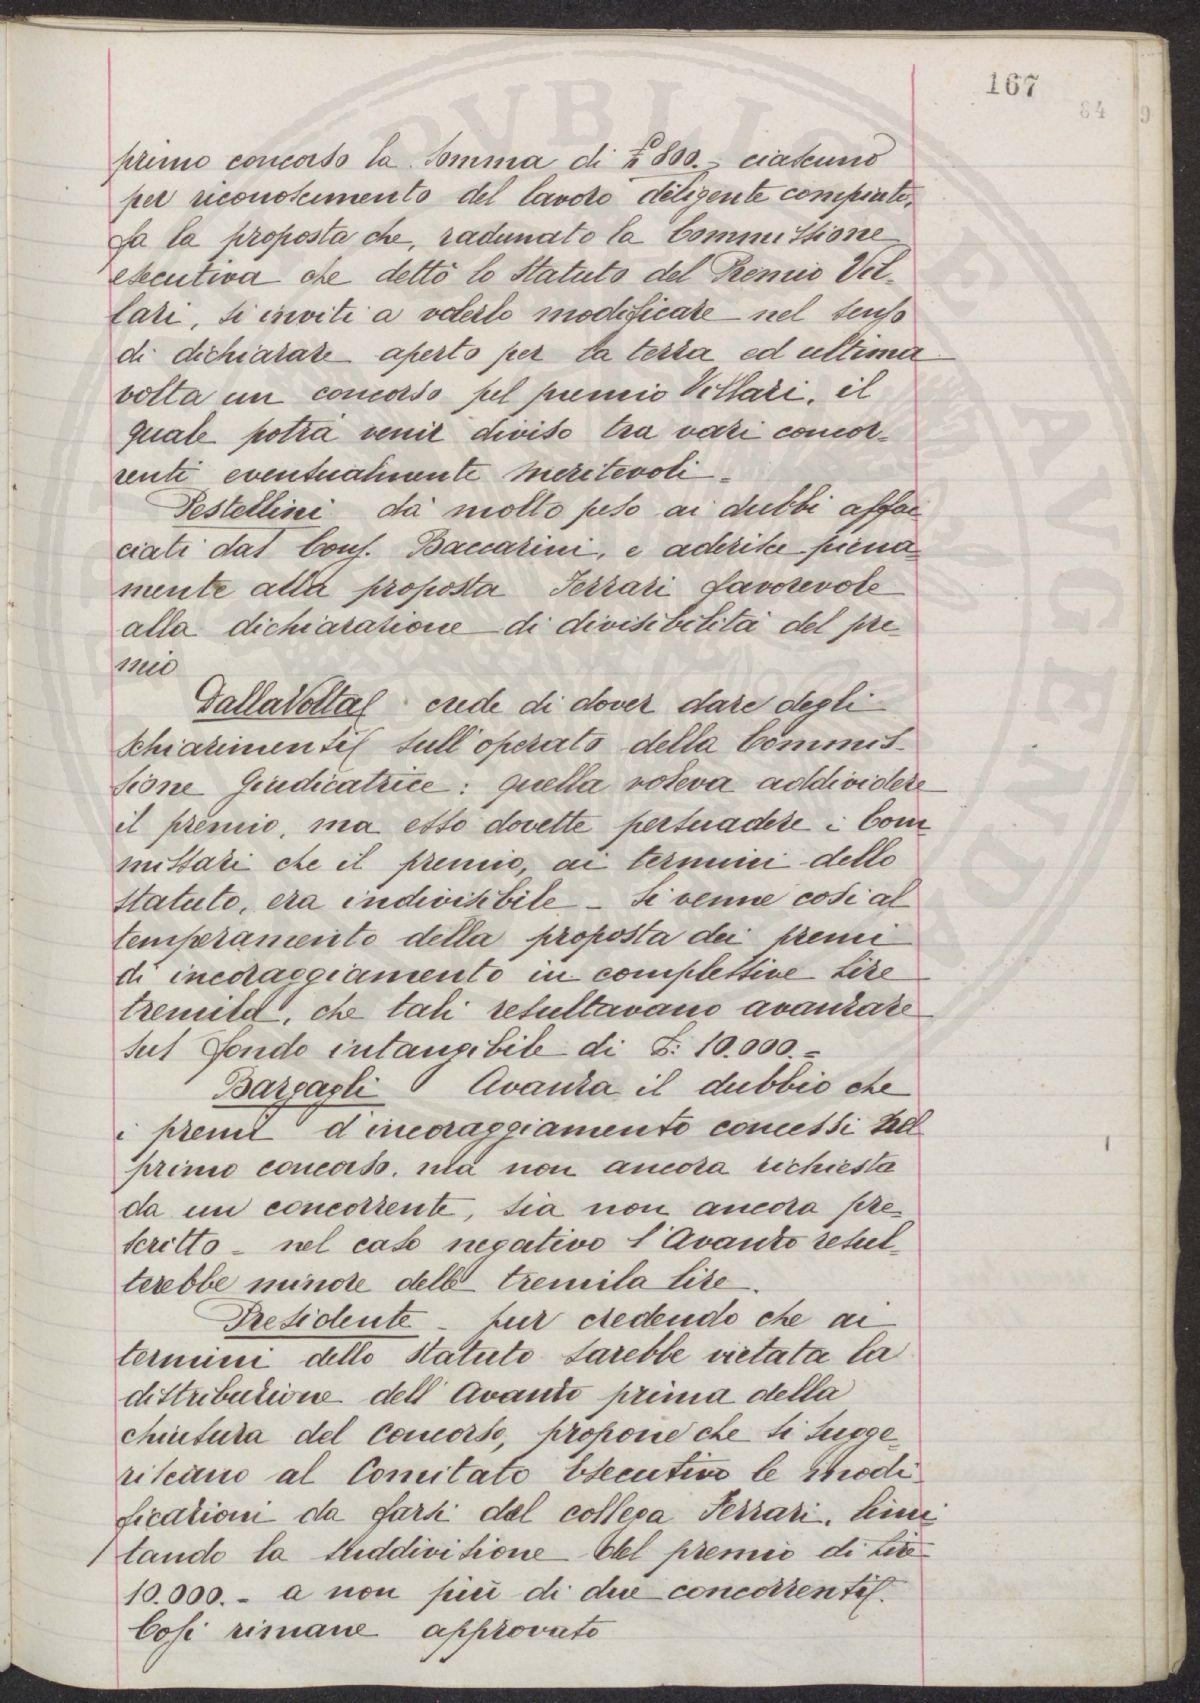 167
84
9
primo concorso la somma di £ 800.- ciascuno
per riconoscimento del lavoro diligente compiuto,
fa la proposta che, radunato la Commissione
esecutiva che dettò lo Statuto del Premio Vil-
lari, si inviti a volerlo modificare nel senso
di dichiarare aperto per la terza ed ultima
volta un concorso pel premio Villari, il
quale potrà venir diviso tra vari concor-
renti eventualmente meritevoli.-
Pestellini dà molto peso ai dubbi affac
ciati dal Cons. Baccarini, e aderisce piena-
mente alla proposta Ferrari favorevole
alla dichiarazione di divisibilità del pre-
mio
Dalla Volta crede di dover dare degli
schiarimenti sull'operato della Commis-
sione Giudicatrice: quella voleva addividere
il premio, ma esso dovette persuadere i Com
missari che il premio, ai termini dello
statuto, era indivisibile - si venne così al
temperamento della proposta dei premi
di incoraggiamento in complessive lire
tremila, che tali resultavano avanzare
sul fondo intangibile di £: 10.000.=
Bargagli Avanza il dubbio che
i premi d'incoraggiamento concessi nel
primo concorso, ma non ancora richiesta
da un concorrente, sia non ancora pre-
scritto - nel caso negativo l'Avanzo resul-
terebbe minore delle tremila lire.
Presidente - pur credendo che ai
termini dello statuto sarebbe vietata la
distribuzione dell'Avanzo prima della
chiusura del concorso, propone che si sugge-
riscano al Comitato Esecutivo le modi
ficazioni da farsi dal collega Ferrari, limi
tando la suddivisione del premio di Lire
10.000.- a non più di due concorrenti.
Così rimane approvato